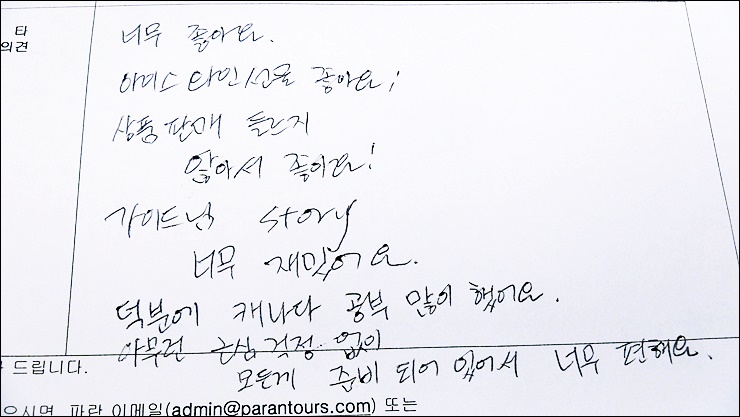 타
의견
너무 좋아요.
아이스 와인 선물 좋아요!
상품 판매 들르지
않아서 좋아요!
가이드님 story
너무 재밌어요.
덕분에 캐나다 공부 많이 했어요.
아무런 근심 걱정 없이
모든게 준비 되어 있어서 너무 편해요.
드립니다.
파란 이메일(admin@parantours.com) 또는